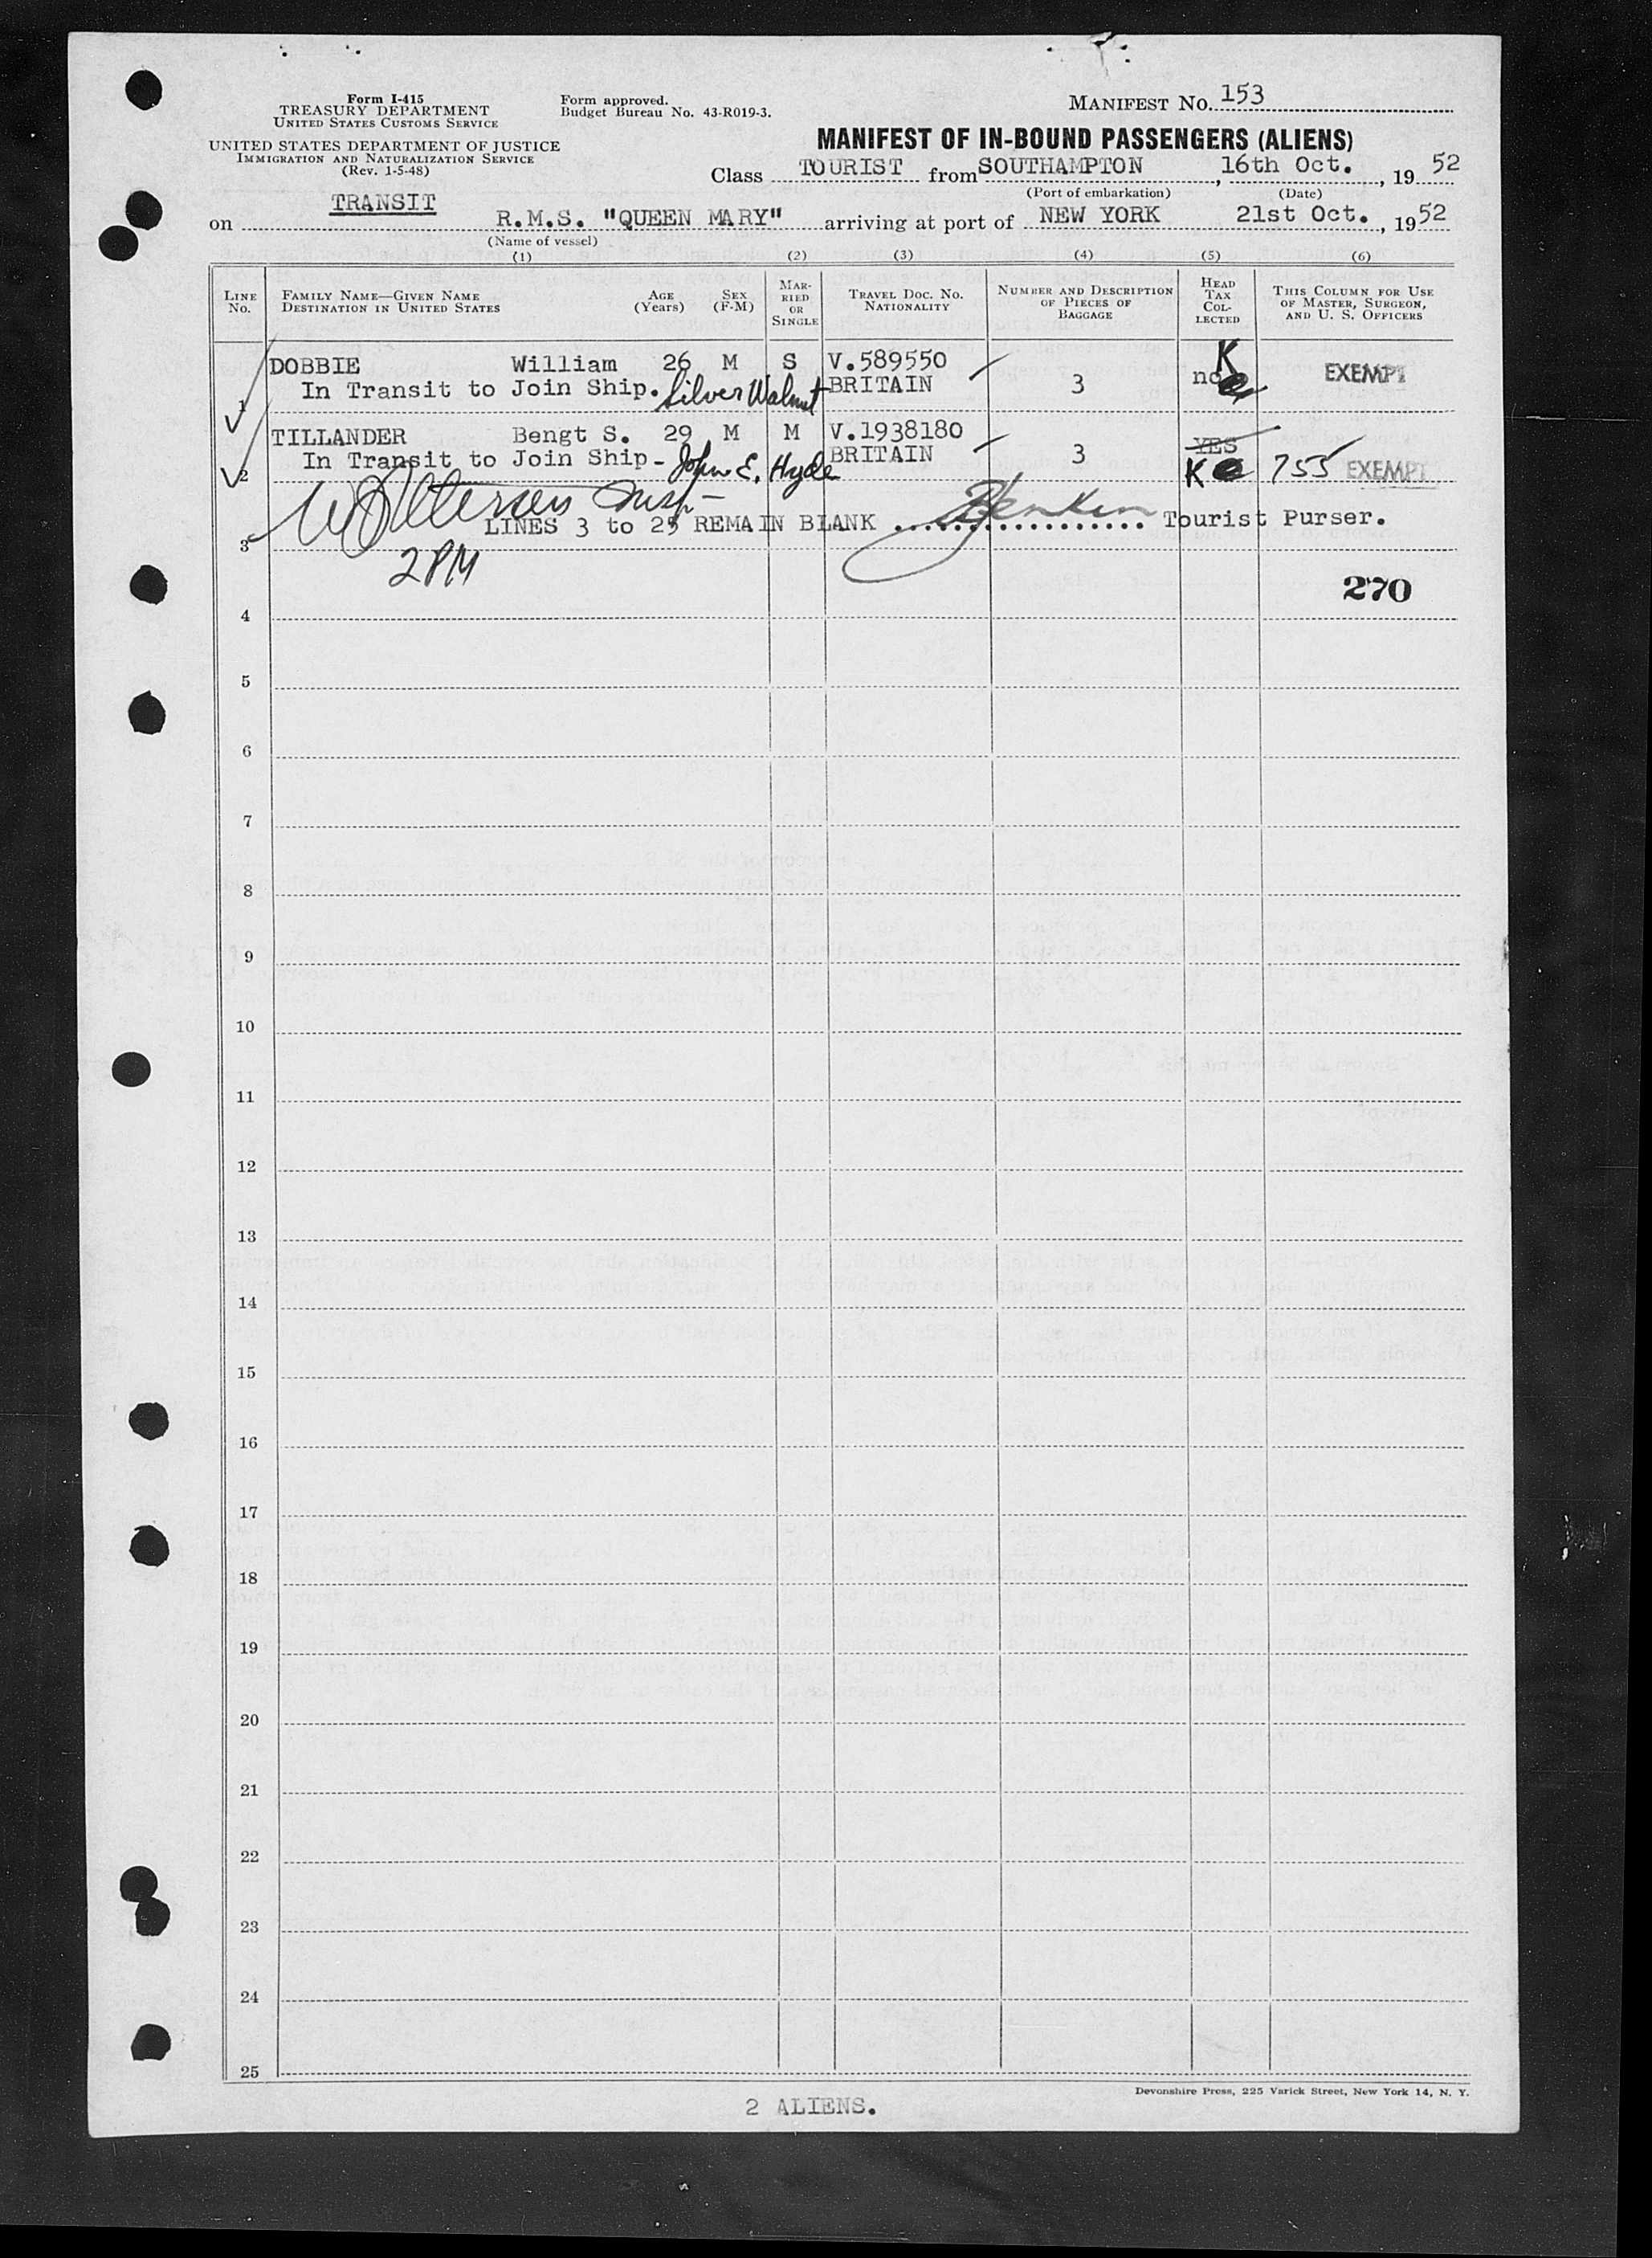 Form I-415
TREASURY DEPARTMENT
UNITED STATES CUSTOMS SERVICE
UNITED STATES DEPARTMENT OF JUSTICE
IMMIGRATION AND NATURALIZATION SERVICE
(Rev. 1-5-48)
Form approved.
Budget Bureau No. 43-R019-3.
MANIFEST No. 153
MANIFEST OF IN-BOUND PASSENGERS (ALIENS)
Class TOURIST from SOUTHAMPTON, 16th Oct., 19 52
(Port of embarkation) (Date)
TRANSIT
on R.M.S. "QUEEN MARY" arriving at port of NEW YORK 21st Oct., 1952
(Name of vessel)
(1) (2) (3) (4) (5) (6)
LINE No. FAMILY NAME—GIVEN NAME DESTINATION IN UNITED STATES AGE (Years) SEX (F-M) MARRIED OR SINGLE TRAVEL DOC. NO. NATIONALITY NUMBER AND DESCRIPTION OF PIECES OF BAGGAGE HEAD TAX COLLECTED THIS COLUMN FOR USE OF MASTER, SURGEON, AND U. S. OFFICERS
DOBBIE William 26 M S V.589550 K
1 In Transit to Join Ship. Silver Walnut BRITAIN 3 no EXEMPT
TILLANDER Bengt S. 29 M M V.1938180 YES
2 In Transit to Join Ship - John E. Hyde BRITAIN 3 K 755 EXEMPT
Insp
3 LINES 3 to 25 REMAIN BLANK .................. Tourist Purser.
2 PM
270
4
5
6
7
8
9
10
11
12
13
14
15
16
17
18
19
20
21
22
23
24
25
Devonshire Press, 225 Varick Street, New York 14, N. Y.
2 ALIENS.